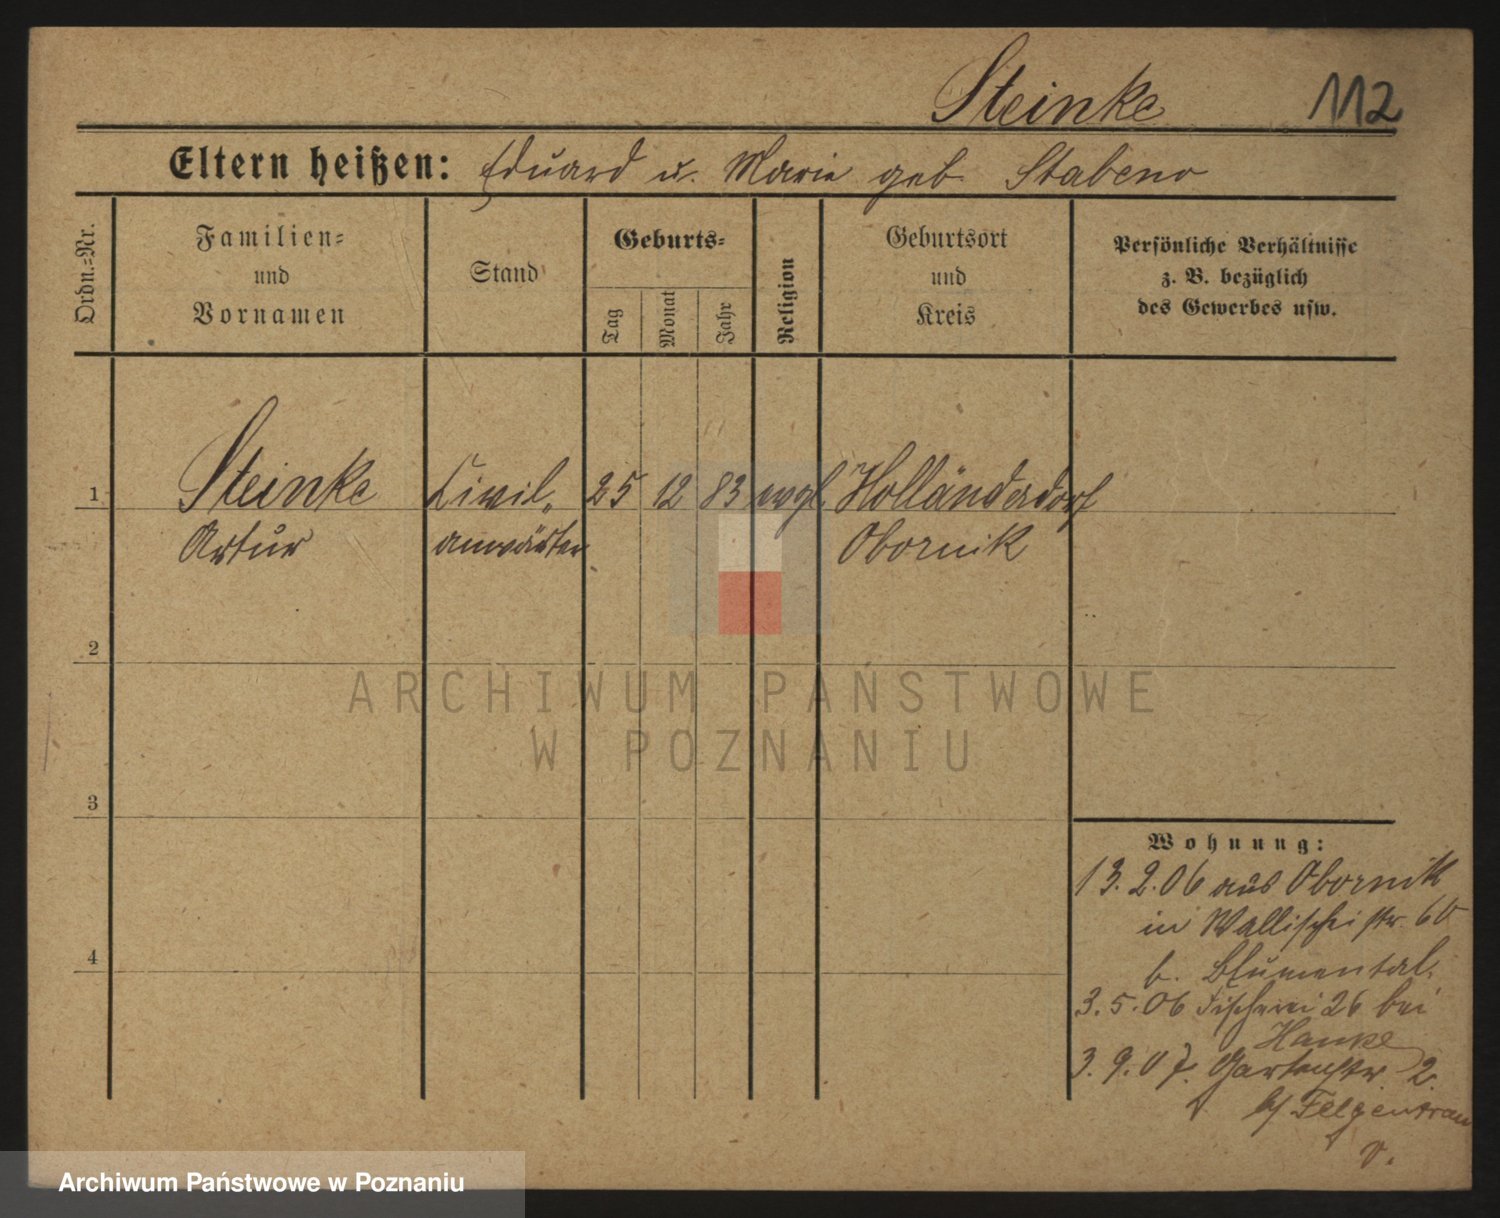 Steinke 112
Eltern heißen: Eduard u. Marie geb. Stabeno
Ordn.-Nr.
Familien-
und
Vornamen
Stand
Geburts-
Tag
Monat
Jahr
Religion
Geburtsort
und
Kreis
Persönliche Verhältnisse
z. B. bezüglich
des Gewerbes usw.
1 Steinke Civil- 25 12 83 evgl. Holländerdorf
Artur anwärter Obornik
2
3
4
Wohnung:
13.2.06 aus Obornik
in Wallischeistr. 60
b. Blumental.
3.5.06 Fischerei 26 bei
Hanke
3.9.07. Gartenstr. 2.
b/ Felgentrau
v.
ARCHIWUM PAŃSTWOWE
W POZNANIU
Archiwum Państwowe w Poznaniu